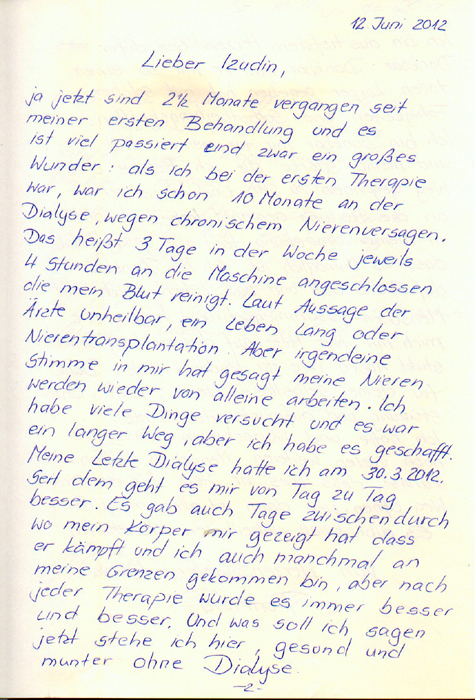 12 Juni 2012
Lieber Izudin,
ja jetzt sind 2½ Monate vergangen seit
meiner ersten Behandlung und es
ist viel passiert und zwar ein großes
Wunder: als ich bei der ersten Therapie
war, war ich schon 10 Monate an der
Dialyse, wegen chronischem Nierenversagen.
Das heißt 3 Tage in der Woche jeweils
4 Stunden an die Maschine angeschlossen
die mein Blut reinigt. Laut Aussage der
Ärzte unheilbar, ein Leben lang oder
Nierentransplantation. Aber irgendeine
Stimme in mir hat gesagt meine Nieren
werden wieder von alleine arbeiten. Ich
habe viele Dinge versucht und es war
ein langer Weg, aber ich habe es geschafft.
Meine Letzte Dialyse hatte ich am 30.3.2012.
Seit dem geht es mir von Tag zu Tag
besser. Es gab auch Tage zwischendurch
wo mein Körper mir gezeigt hat dass
er kämpft und ich auch manchmal an
meine Grenzen gekommen bin, aber nach
jeder Therapie wurde es immer besser
und besser. Und was soll ich sagen
jetzt stehe ich hier, gesund und
munter ohne Dialyse.
-2-